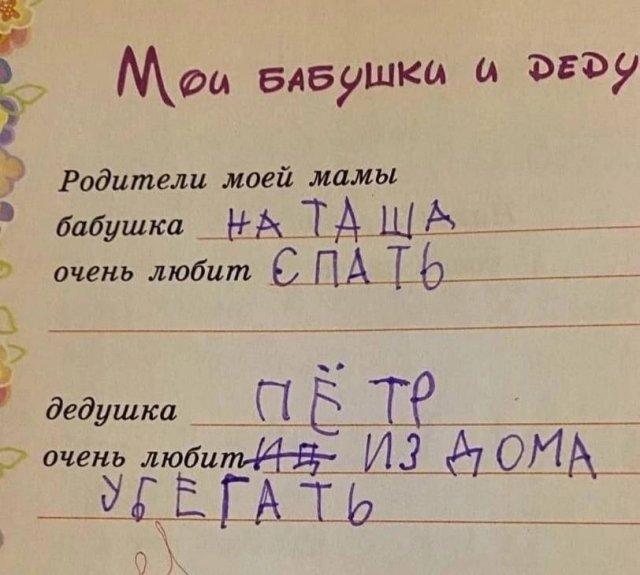 Мои БАБУШКИ и ДЕДУ
Родители моей мамы
бабушка НАТАША
очень любит СПАТЬ
дедушка ПЁТР
очень любит ИЗ ДОМА
УБЕГАТЬ